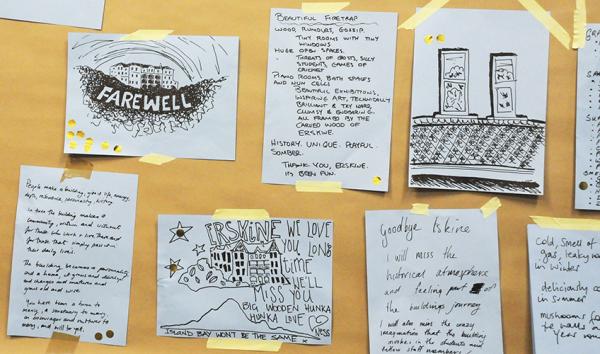 FAREWELL
BEAUTIFUL FIRETRAP
WOOD, RUMOURS, GOSSIP.
TINY ROOMS WITH TINY
WINDOWS
HUGE OPEN SPACES.
THREATS OF GHOSTS, SILLY
STUDENTS, GAMES OF
CRICKET
PIANO ROOMS, BATH SPACES
AND NUN CELLS
BEAUTIFUL EXHIBITIONS,
INSPIRING ART, TECHNICALLY
BRILLIANT & TRY HARD,
CLUMSY & ENDEARING.
ALL FRAMED BY THE
CARVED WOOD OF
ERSKINE.
HISTORY. UNIQUE. PLAYFUL.
SOMBER.
THANK YOU, ERSKINE.
ITS BEEN FUN.
People make a building, give it life, energy,
depth, relevance, personality, history.
In turn the building makes a
community, within and without
for those who work & live there and
for those that simply pass in
their daily lives.
The building becomes a personality
and a friend,
and changes and matures and
grows old and wise.
You have been a home to
many, a sanctuary to many,
an encourager and nurturer to
many, and will be yet.
ERSKINE WE LOVE
YOU LONG
TIME
WE'LL
MISS YOU
BIG WOODEN HUNKA
HUNKA LOVE
ISLAND BAY WON'T BE THE SAME x
Goodbye Erskine
I will miss the
historical atmosphere
and feeling part
the buildings journey
I will also miss the crazy
imagination that the building
invokes in the students and
fellow staff members!
cold, smell of
gas, leaky
in winter
deliciously
in summer
mushrooms